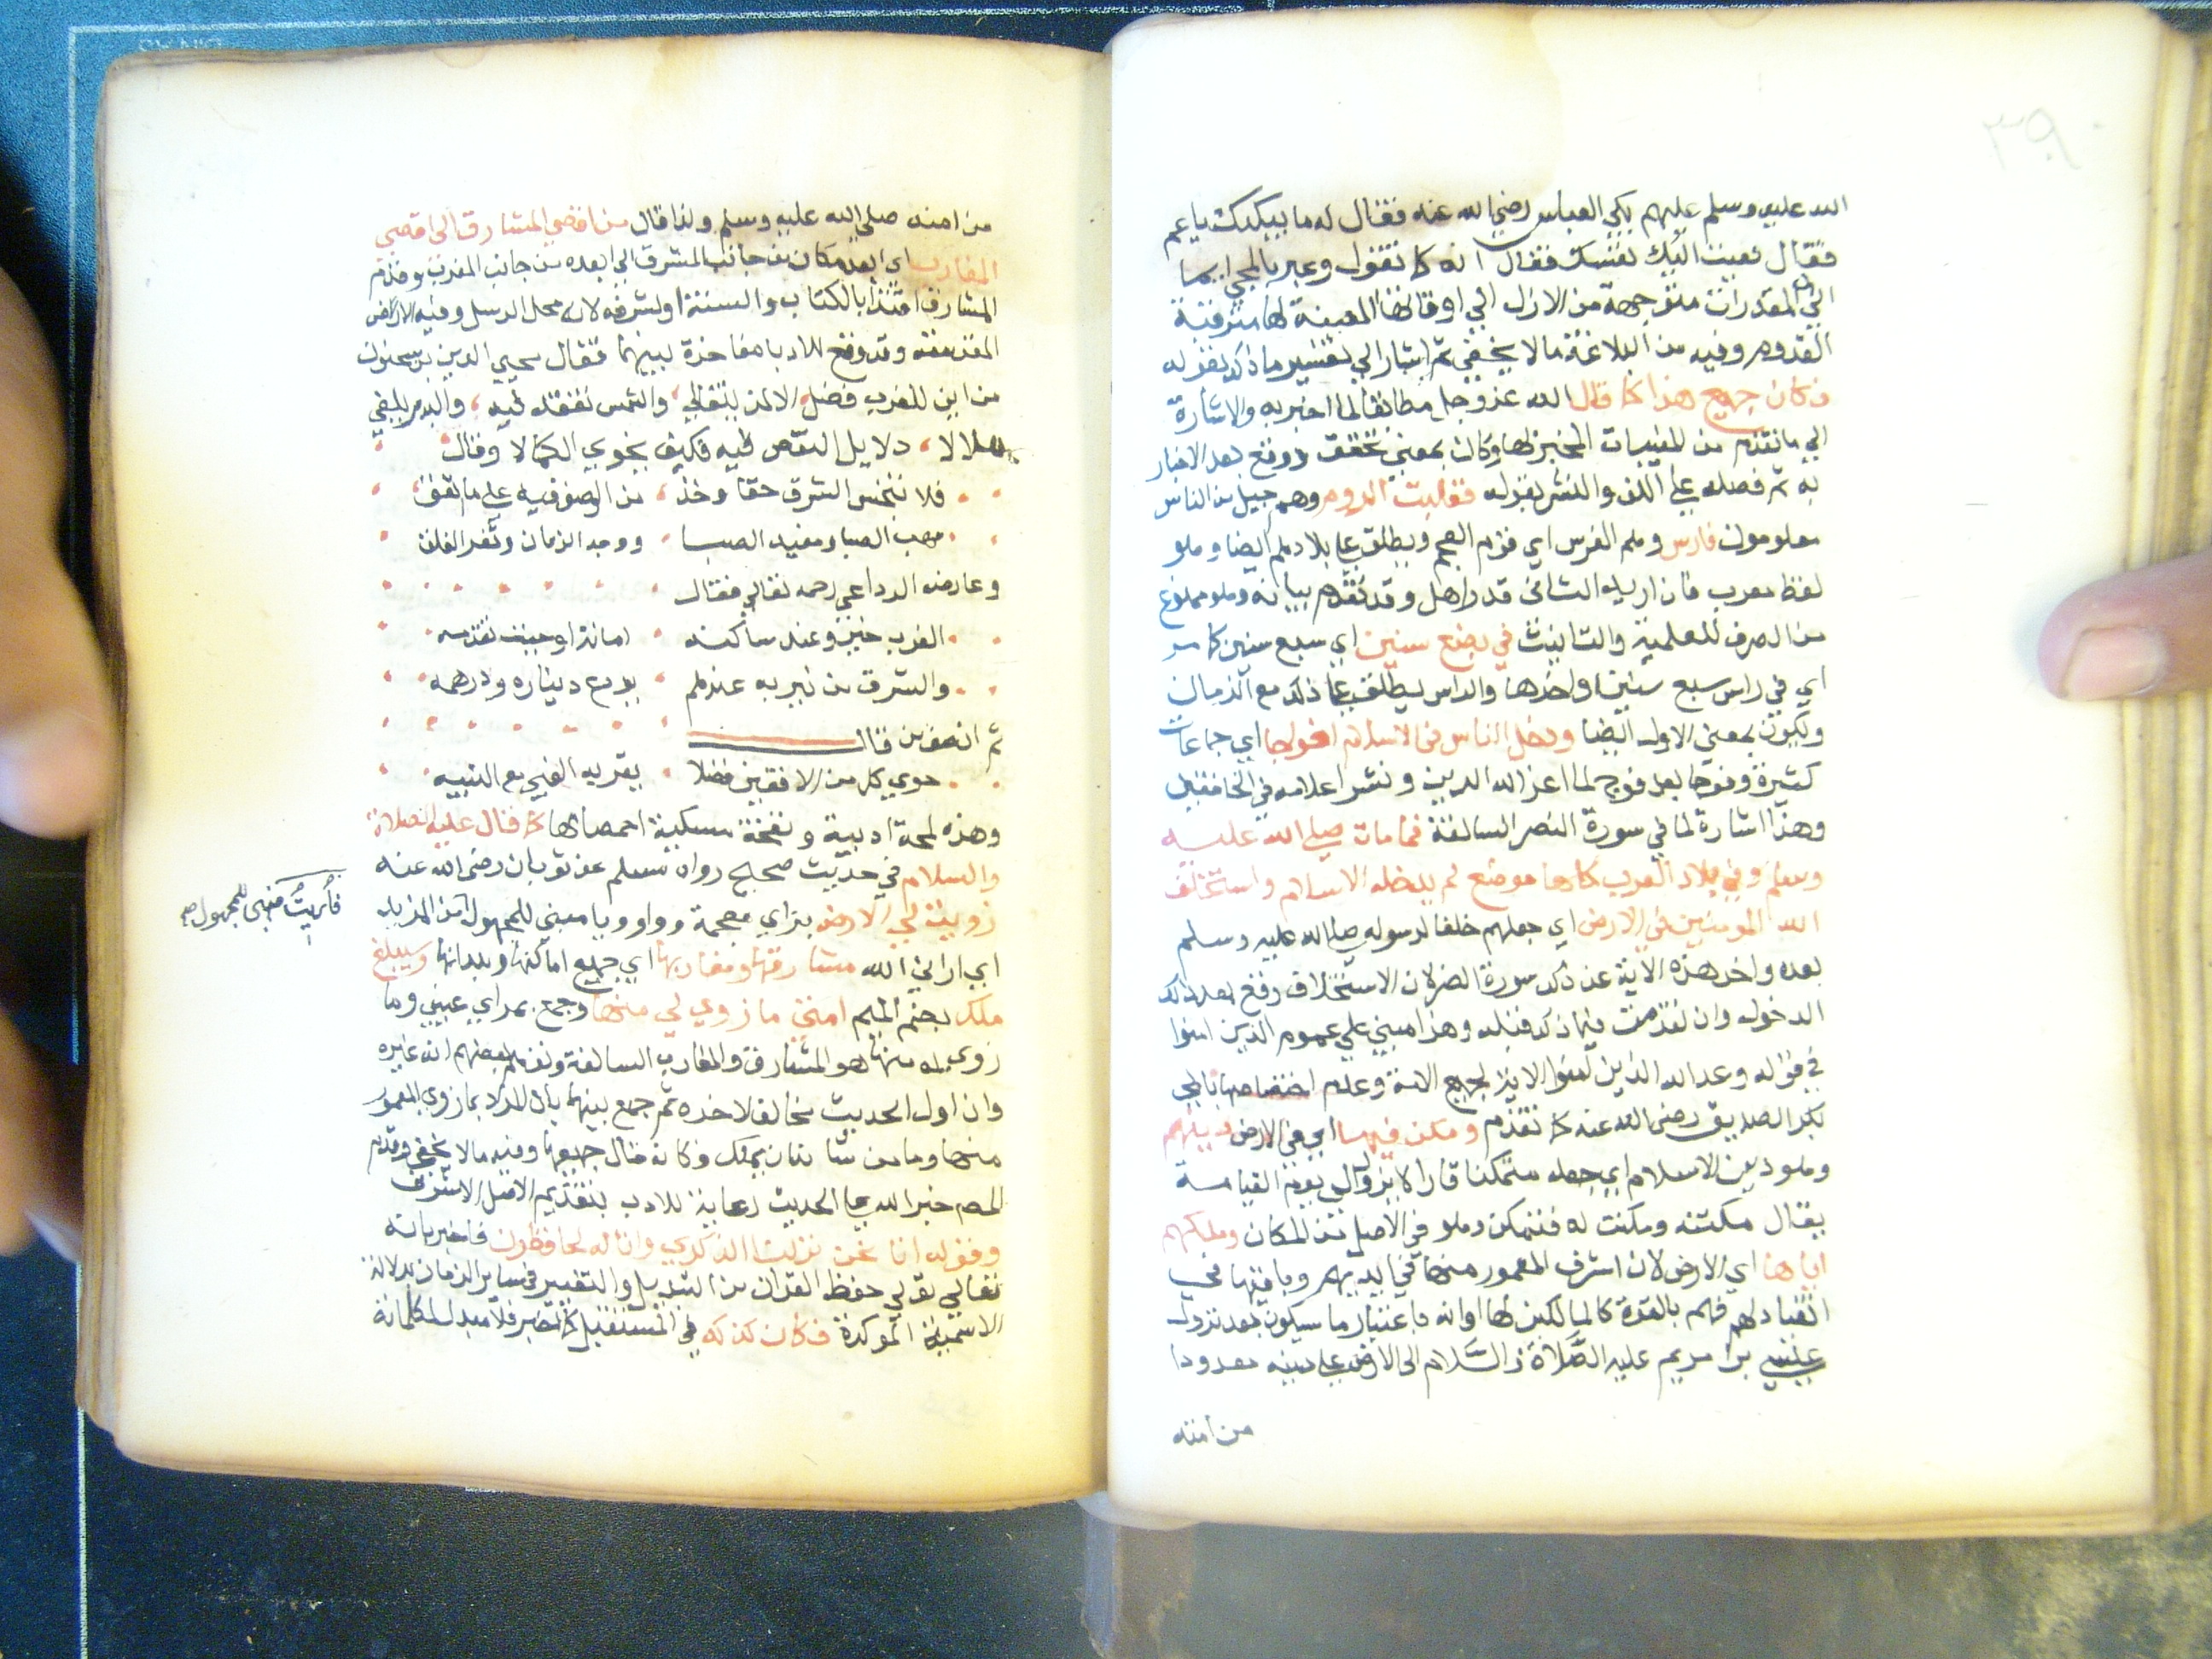 ٣٩٠
الله عليه وسلم عليهم بكي العباس رضي الله عنه فقال له ما يبكيك يا عم
فقال نعيت اليك نفسك فقال انه كما تقول وعبر بالمجي ايما
الي ان المقدرات متوجهة من الازل الي اوقاتها المعينة لها مترقبة
القدوم وفيه من البلاغة ما لا يخفي ثم اشار الي تفسير ما ذكر بقوله
فكان جميع هذا كما قال الله عزوجل مطابقا لما اخبر به والاشارة
الي ما تقدم من المغيبات المخبر بها وكان بمعني تحقق ووقع بعد الاخبار
به ثم فصله علي اللف والنشر بقوله فغلبت الروم وهم جيل من الناس
معلومون فارس وهم الفرس اي قوم العجم ويطلق علي بلادهم ايضا وهو
لفظ معرب فان اريد الثاني قدر اهل وقد تقدم بيانه وهو ممنوع
من الصرف للعلمية والتانيث في بضع سنين اي سبع سنين كما مر
اي في راس سبع سنين او اخرها والراس يطلق علي ذلك مع الزمان
ويكون بمعني الاول ايضا ودخل الناس في الاسلام افواجا اي جماعات
كثيرة وفوجا بعد فوج لما اعز الله الدين ونشر اعلامه في الخافقين
وهذا اشارة لما في سورة النصر السالفة فما مات صلي الله عليه
وسلم وفي بلاد العرب كلها موضع لم يدخله الاسلام واستخلف
الله المومنين في الارض اي جعلهم خلفا لرسوله صلي الله عليه وسلم
بعده واخر هذه الاية عن ذكر سورة النصر لان الاستخلاف وقع بعد ذلك
الدخول وان تقدمت فيما ذكر قبله وهذا مبني علي عموم الذين امنوا
في قوله وعد الله الذين امنوا الاية لجميع الامة وعدم اختصاصها بابي
بكر الصديق رضي الله عنه كما تقدم ومكن فيها اي في الارض دينهم
وهو دين الاسلام اي جعله متمكنا قارا لا يزول الي يوم القيامة
يقال مكنته ومكنت له فتمكن وهو في الاصل من المكان وملكهم
اياها اي الارض لان اشرف المعمور منها في ايديهم وباقيها في
انقياد لهم فهم بالقوة كالمالكين لها او انه باعتبار ما سيكون بعد نزول
عيسي بن مريم عليه الصلاة والسلام الى الارض علي دينه معدودا
من امته
من امته صلي الله عليه وسلم ولذا قال من اقصي المشارق الي اقصي
المغارب اي ابعد مكان من جانب المشرق الي ابعده من جانب المغرب وقدم
المشارق اقتدا بالكتاب والسنة او لشرفه لانه محل الرسل وفيه الاراض
المقدسة وقد وقع للادبا مفاخرة بينهما فقال محيي الدين بن سحنون
من اين للغرب فضل الا لمن يتغالي والشمس تفقد فيه والبدر يلفي
هلالا دلايل النقص فيه فكيف يحوي الكمالا وقال
فلا تبخس الشرق حقا وخذ من الوصف فيه علي ما اتفق
مهب الصبا ومفيد الصبا ووجه الزمان وثغر الفلق
وعارضه الوداعي رحمه تعالي فقال
الغرب خير وعند ساكنه امانة اوجبت تقدمه
والشرق من نيريه عندهم يودع ديناره ودرهمه
ثم انصف من قال
حوي كل من الافقين فضلا يقر به الغبي مع النبيه
وهذه لمحة ادبية ونفحة مسكية احمصناها كما قال عليه الصلاة
والسلام في حديث صحيح رواه مسلم عن ثوبان رضي الله عنه
زويت لي الارض بزاي معجمة وواو ويا مبني للمجهول من المزيد
اي اراني الله مشارقها ومغاربها اي جميع اماكنها وبلدانها وسيبلغ
ملك بضم الميم امتي ما زوي لي منها وجمع بمراي عيني وما
زوي له منها هو المشارق والمغارب السالفة وتوهم بعضهم انه غيره
وان اول الحديث مخالف لاخره ثم جمع بينهما بان المراد بما زوي المعمور
منها وما من شانه ان يملك وكانه قال جميعها وفيه ما لا يخفي وقدم
المص خبر الله علي الحديث رعاية للادب بتقديم الاصل الاشرف
وقوله انا نحن نزلنا الذكر وانا له لحافظون فاخبر بانه
تعالي تولي حفظ القران من التبديل والتغيير في ساير الزمان بدلالة
الاسمية الموكدة فكان كذلك في المستقبل كما اخبر فلا مبدل لكلماته
فاريت مبني للمجهول صح